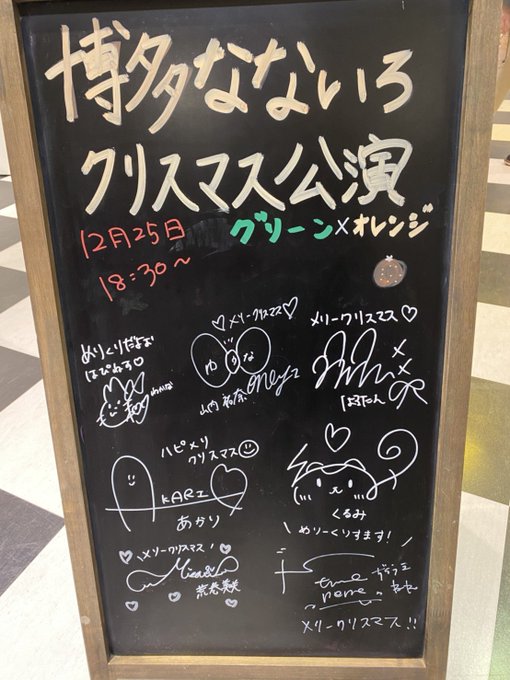 博多なないろ
クリスマス公演
12月25日
グリーン×オレンジ
18:30〜
めりくりだよぉ
はぴねす♡
♡メリークリスマス♡
ゆうな
山内祐奈
メリークリスマス♡
ハピメリ
クリスマス
AKARI
あかり
くるみ
\ めりーくりすます! /
\メリークリスマス/
Misaki
荒巻美咲
メリークリスマス!!